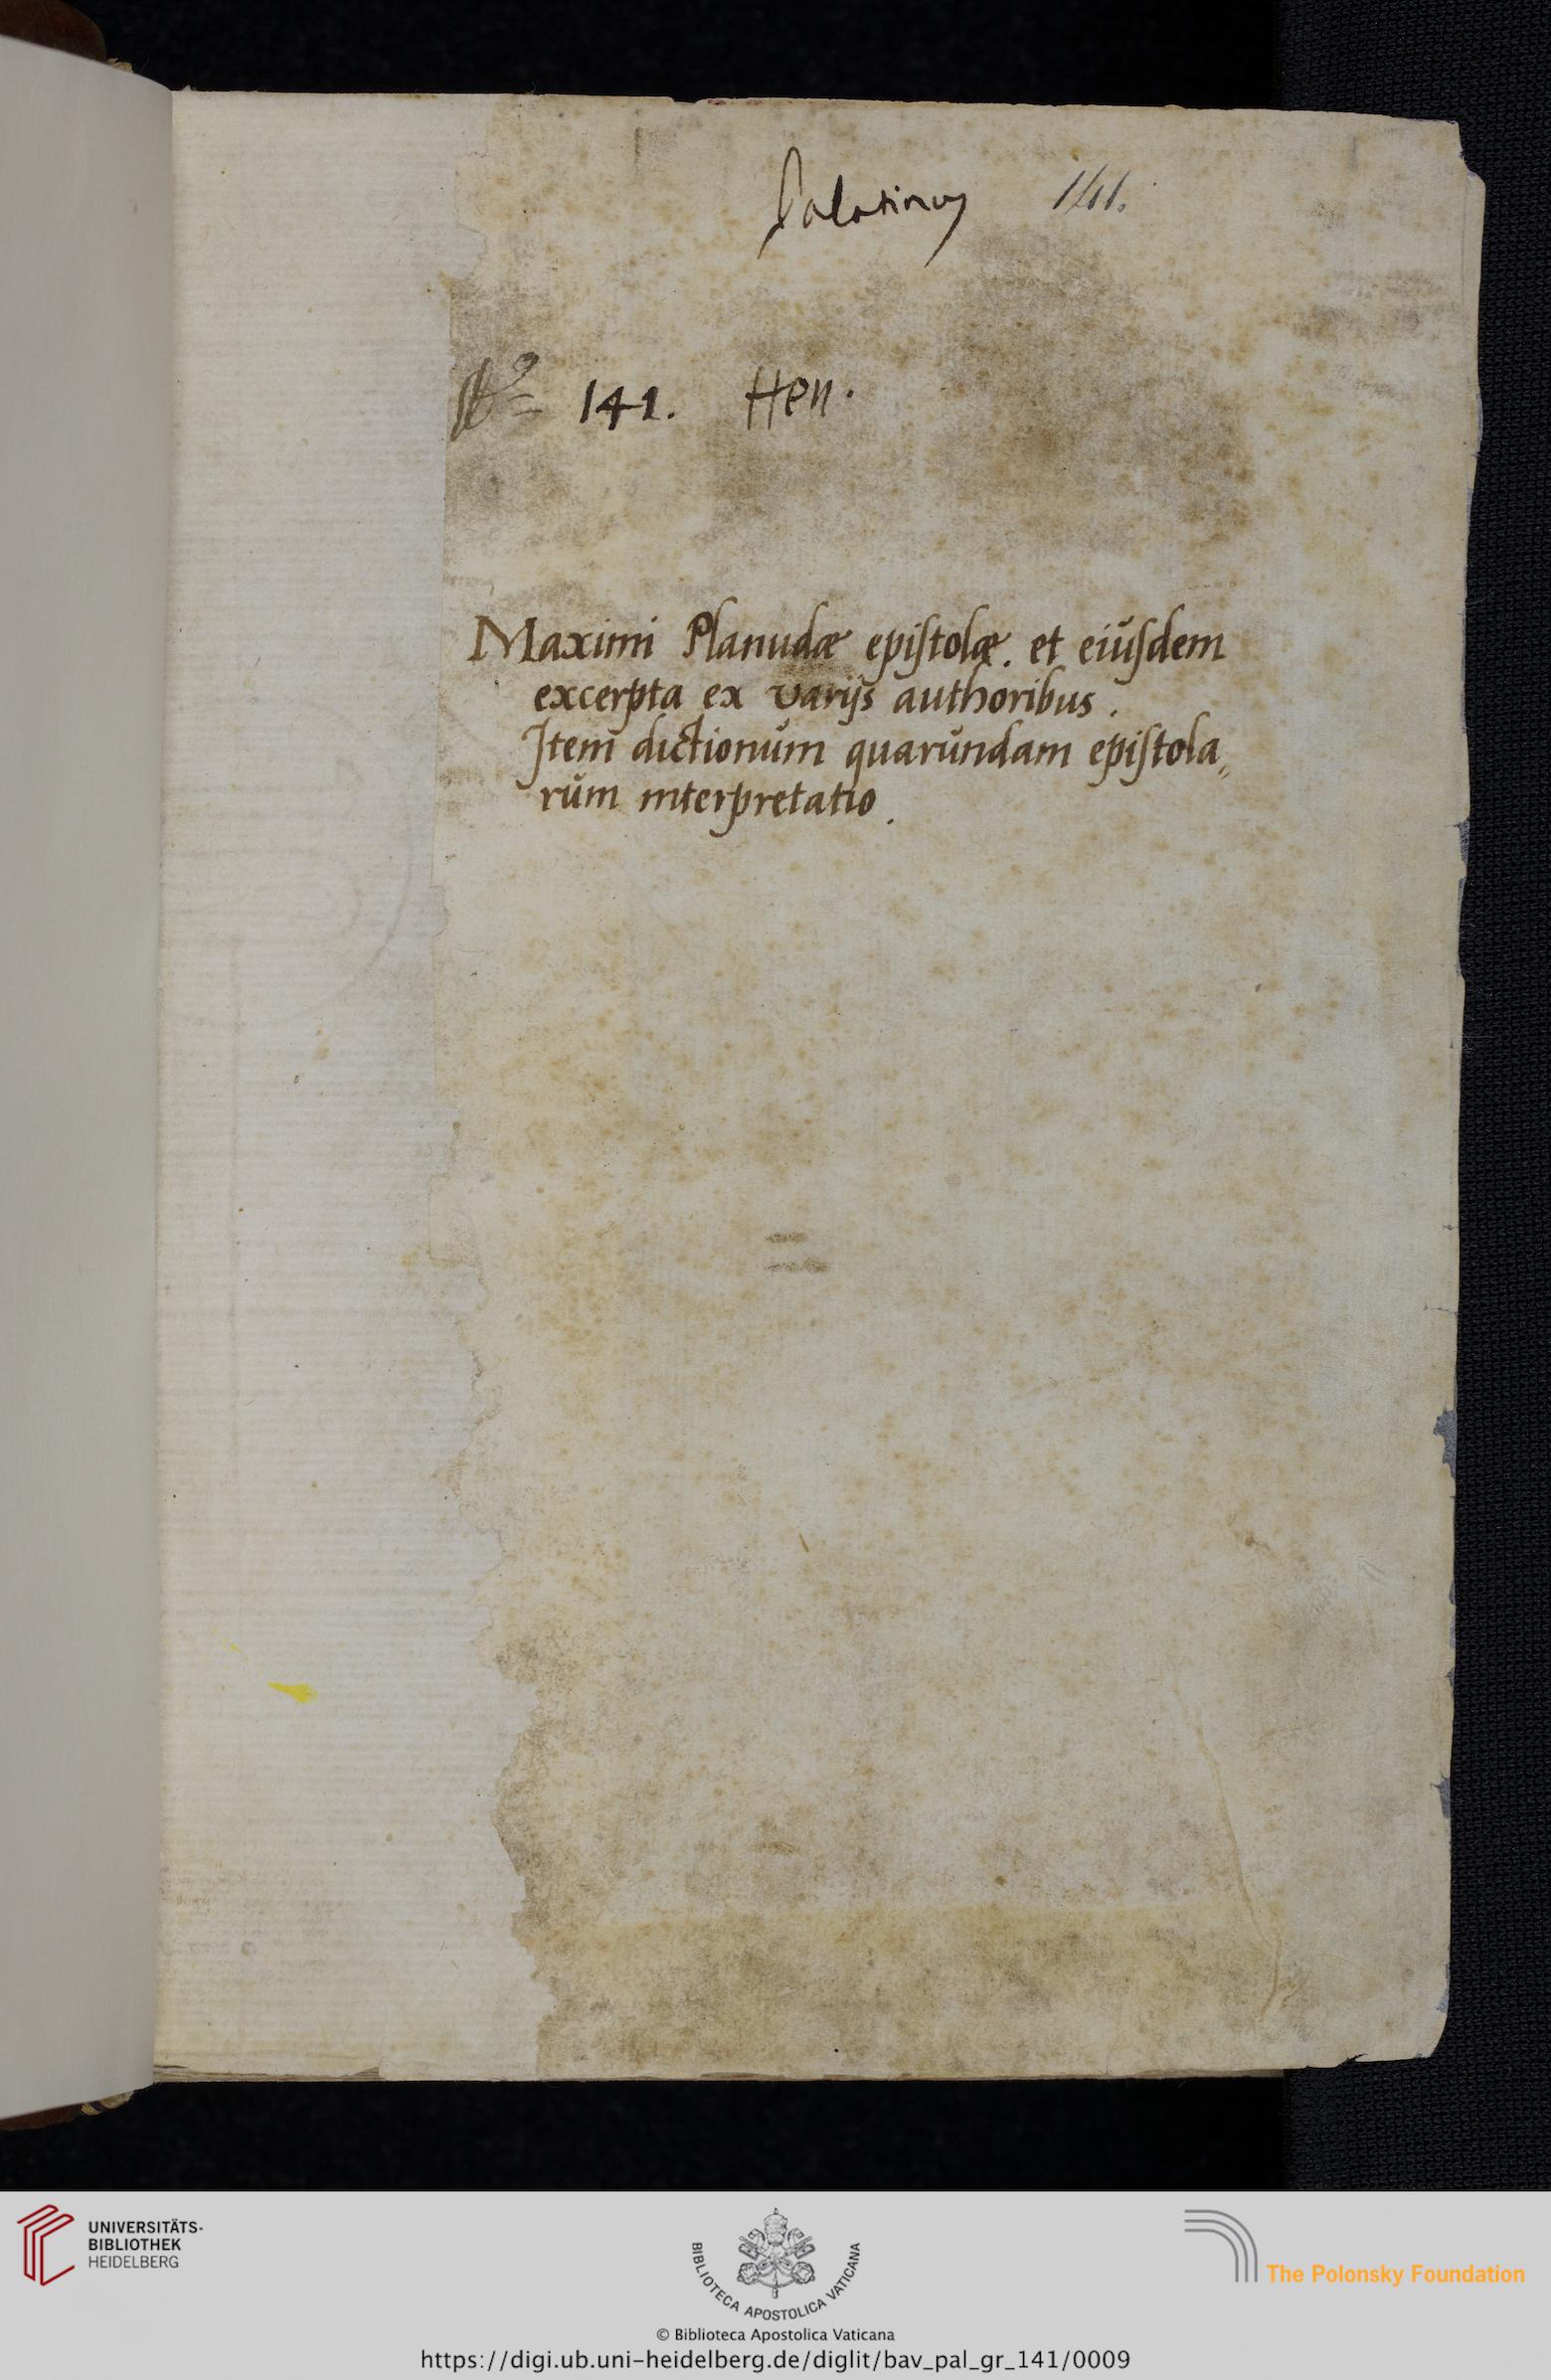 Palatinus 141.
Nº 141. Hen.
Maximi Planudæ epistolæ. et eiúsdem
excerpta ex varijs authoribus.
Item dictionúm quarúndam epistola„
rúm interpretatio.
UNIVERSITÄTS-
BIBLIOTHEK
HEIDELBERG
BIBLIOTECA APOSTOLICA VATICANA
The Polonsky Foundation
© Biblioteca Apostolica Vaticana
https://digi.ub.uni-heidelberg.de/diglit/bav_pal_gr_141/0009